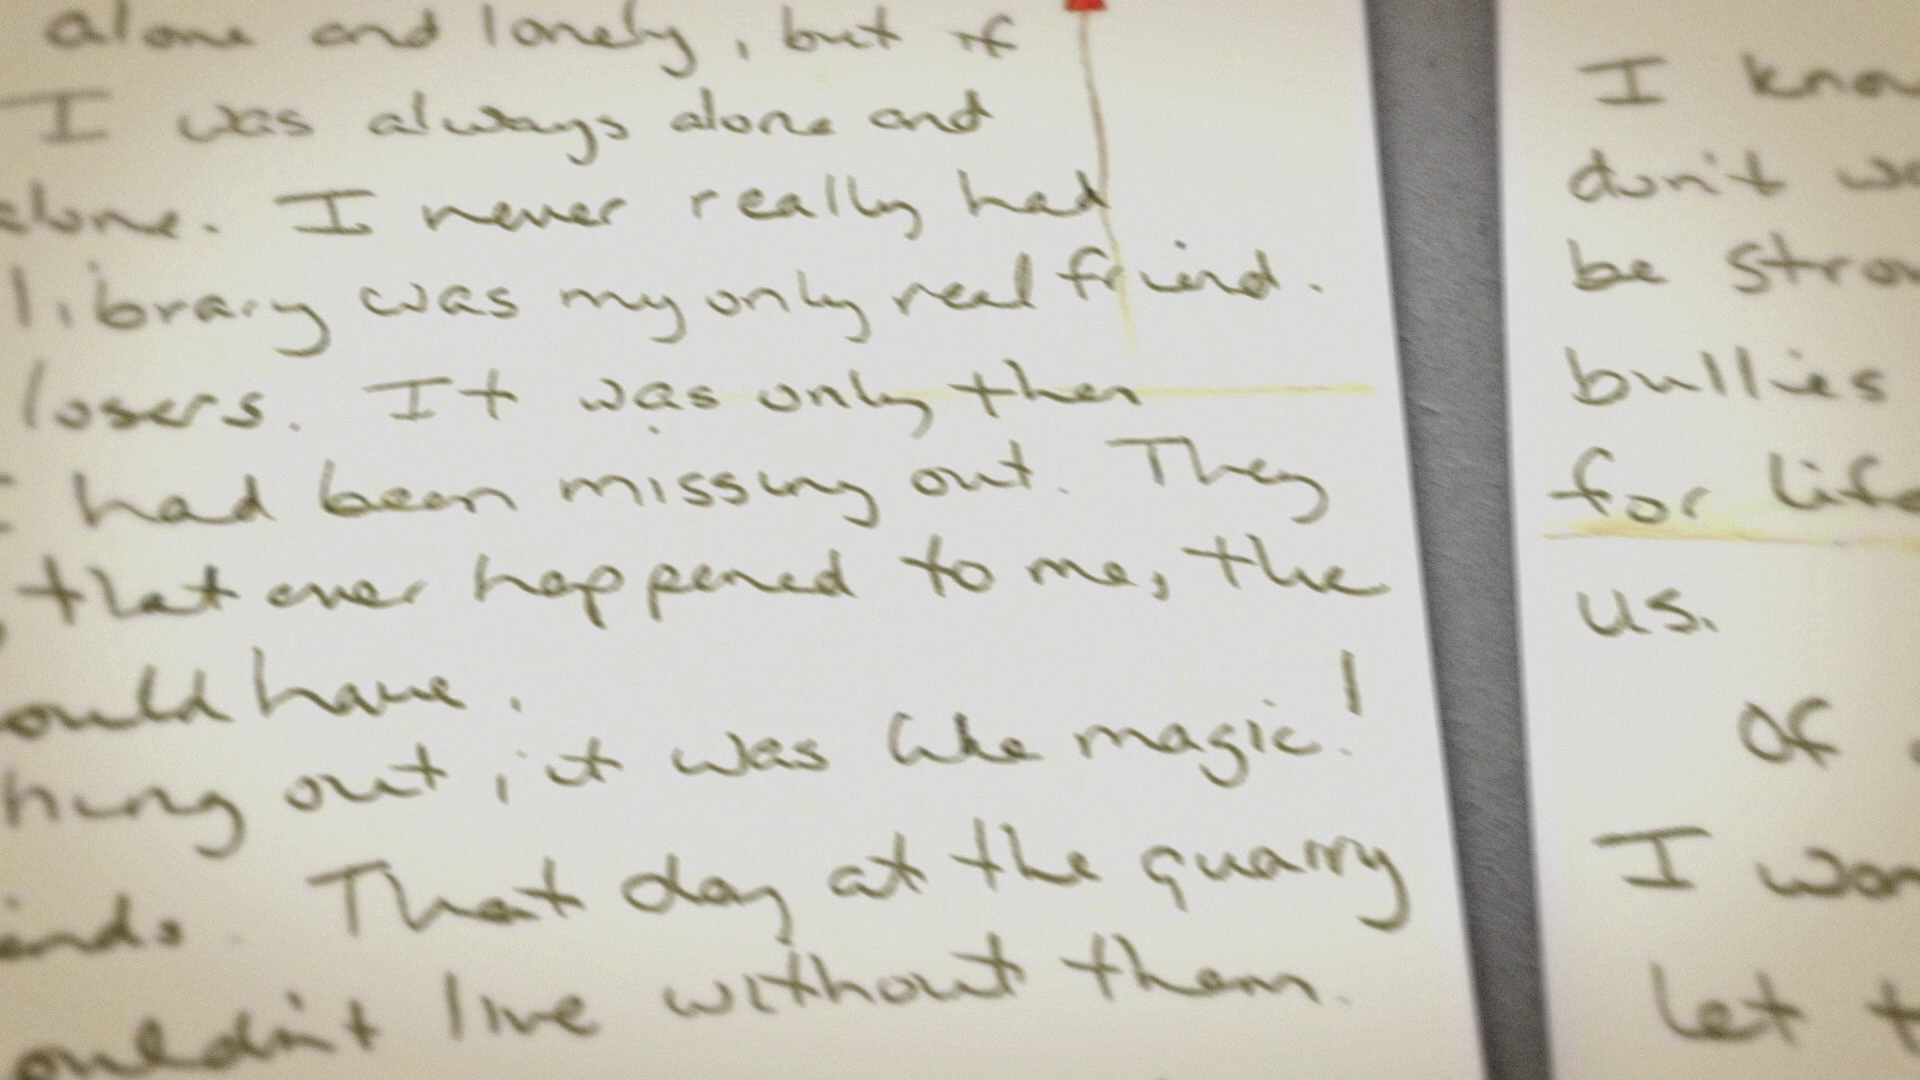 alone and lonely, but if
I was always alone and
alone. I never really had
library was my only real friend.
losers. It was only then
I had been missing out. They
that ever happened to me, the
ould have.
hung out, it was like magic!
iends. That day at the quarry
ouldn't live without them.
I know
don't wa
be stron
bullies
for life
us.
Of
I won
let t